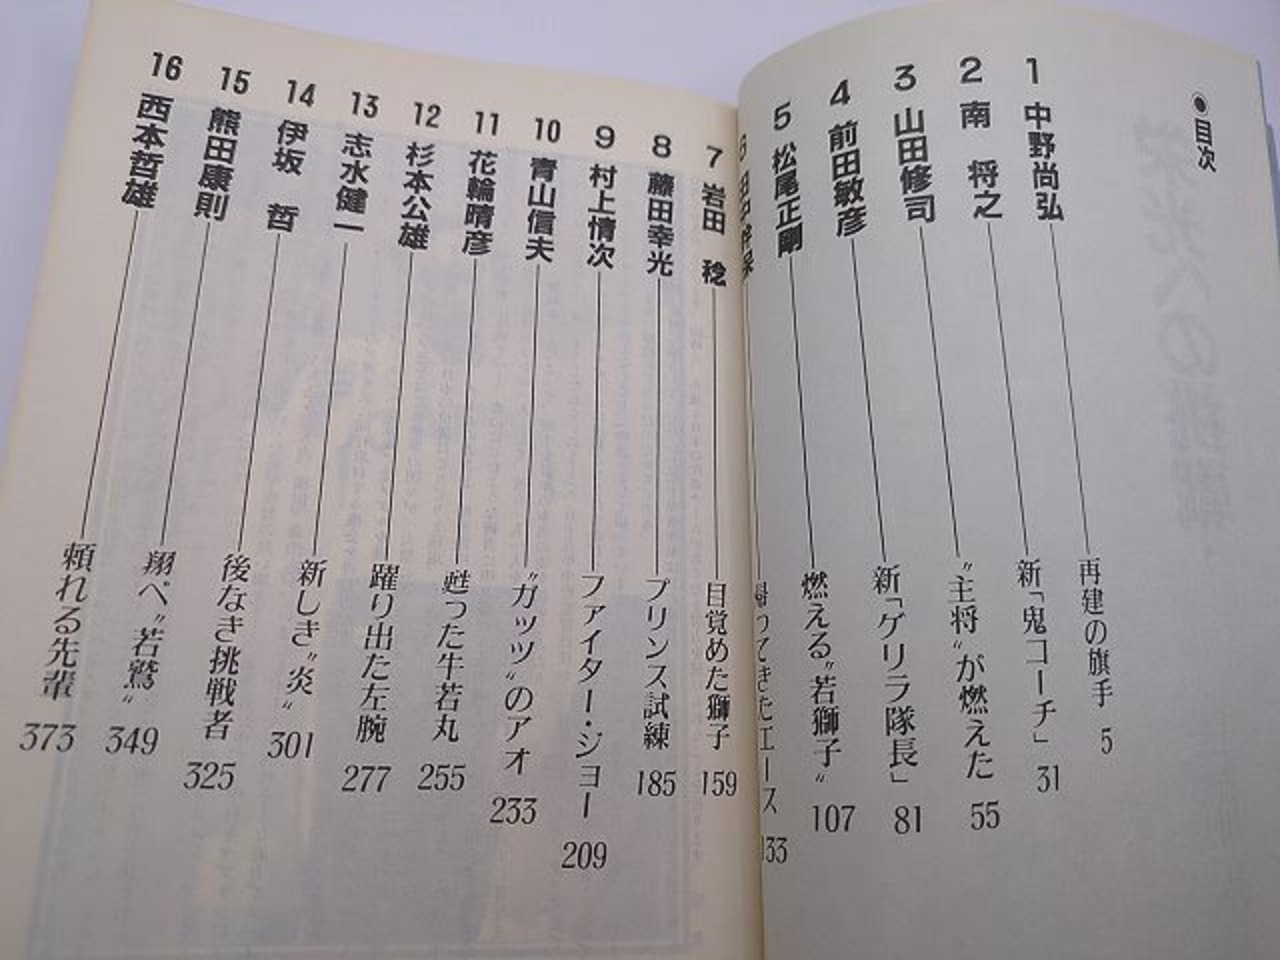 ●目次
1 中野尚弘 再建の旗手 5
2 南 将之 新「鬼コーチ」 31
3 山田修司 〝主将〟が燃えた 55
4 前田敏彦 新「ゲリラ隊長」 81
5 松尾正剛 燃える〝若獅子〟 107
帰ってきたエース 133
7 岩田 稔 目覚めた獅子 159
8 藤田幸光 プリンス試練 185
9 村上情次 ファイター・ジョー 209
10 青山信夫 〝ガッツ〟のアオ 233
11 花輪晴彦 甦った牛若丸 255
12 杉本公雄 躍り出た左腕 277
13 志水健一 新しき〝炎〟 301
14 伊坂 哲 後なき挑戦者 325
15 熊田康則 翔べ〝若鷲〟 349
16 西本哲雄 頼れる先輩 373